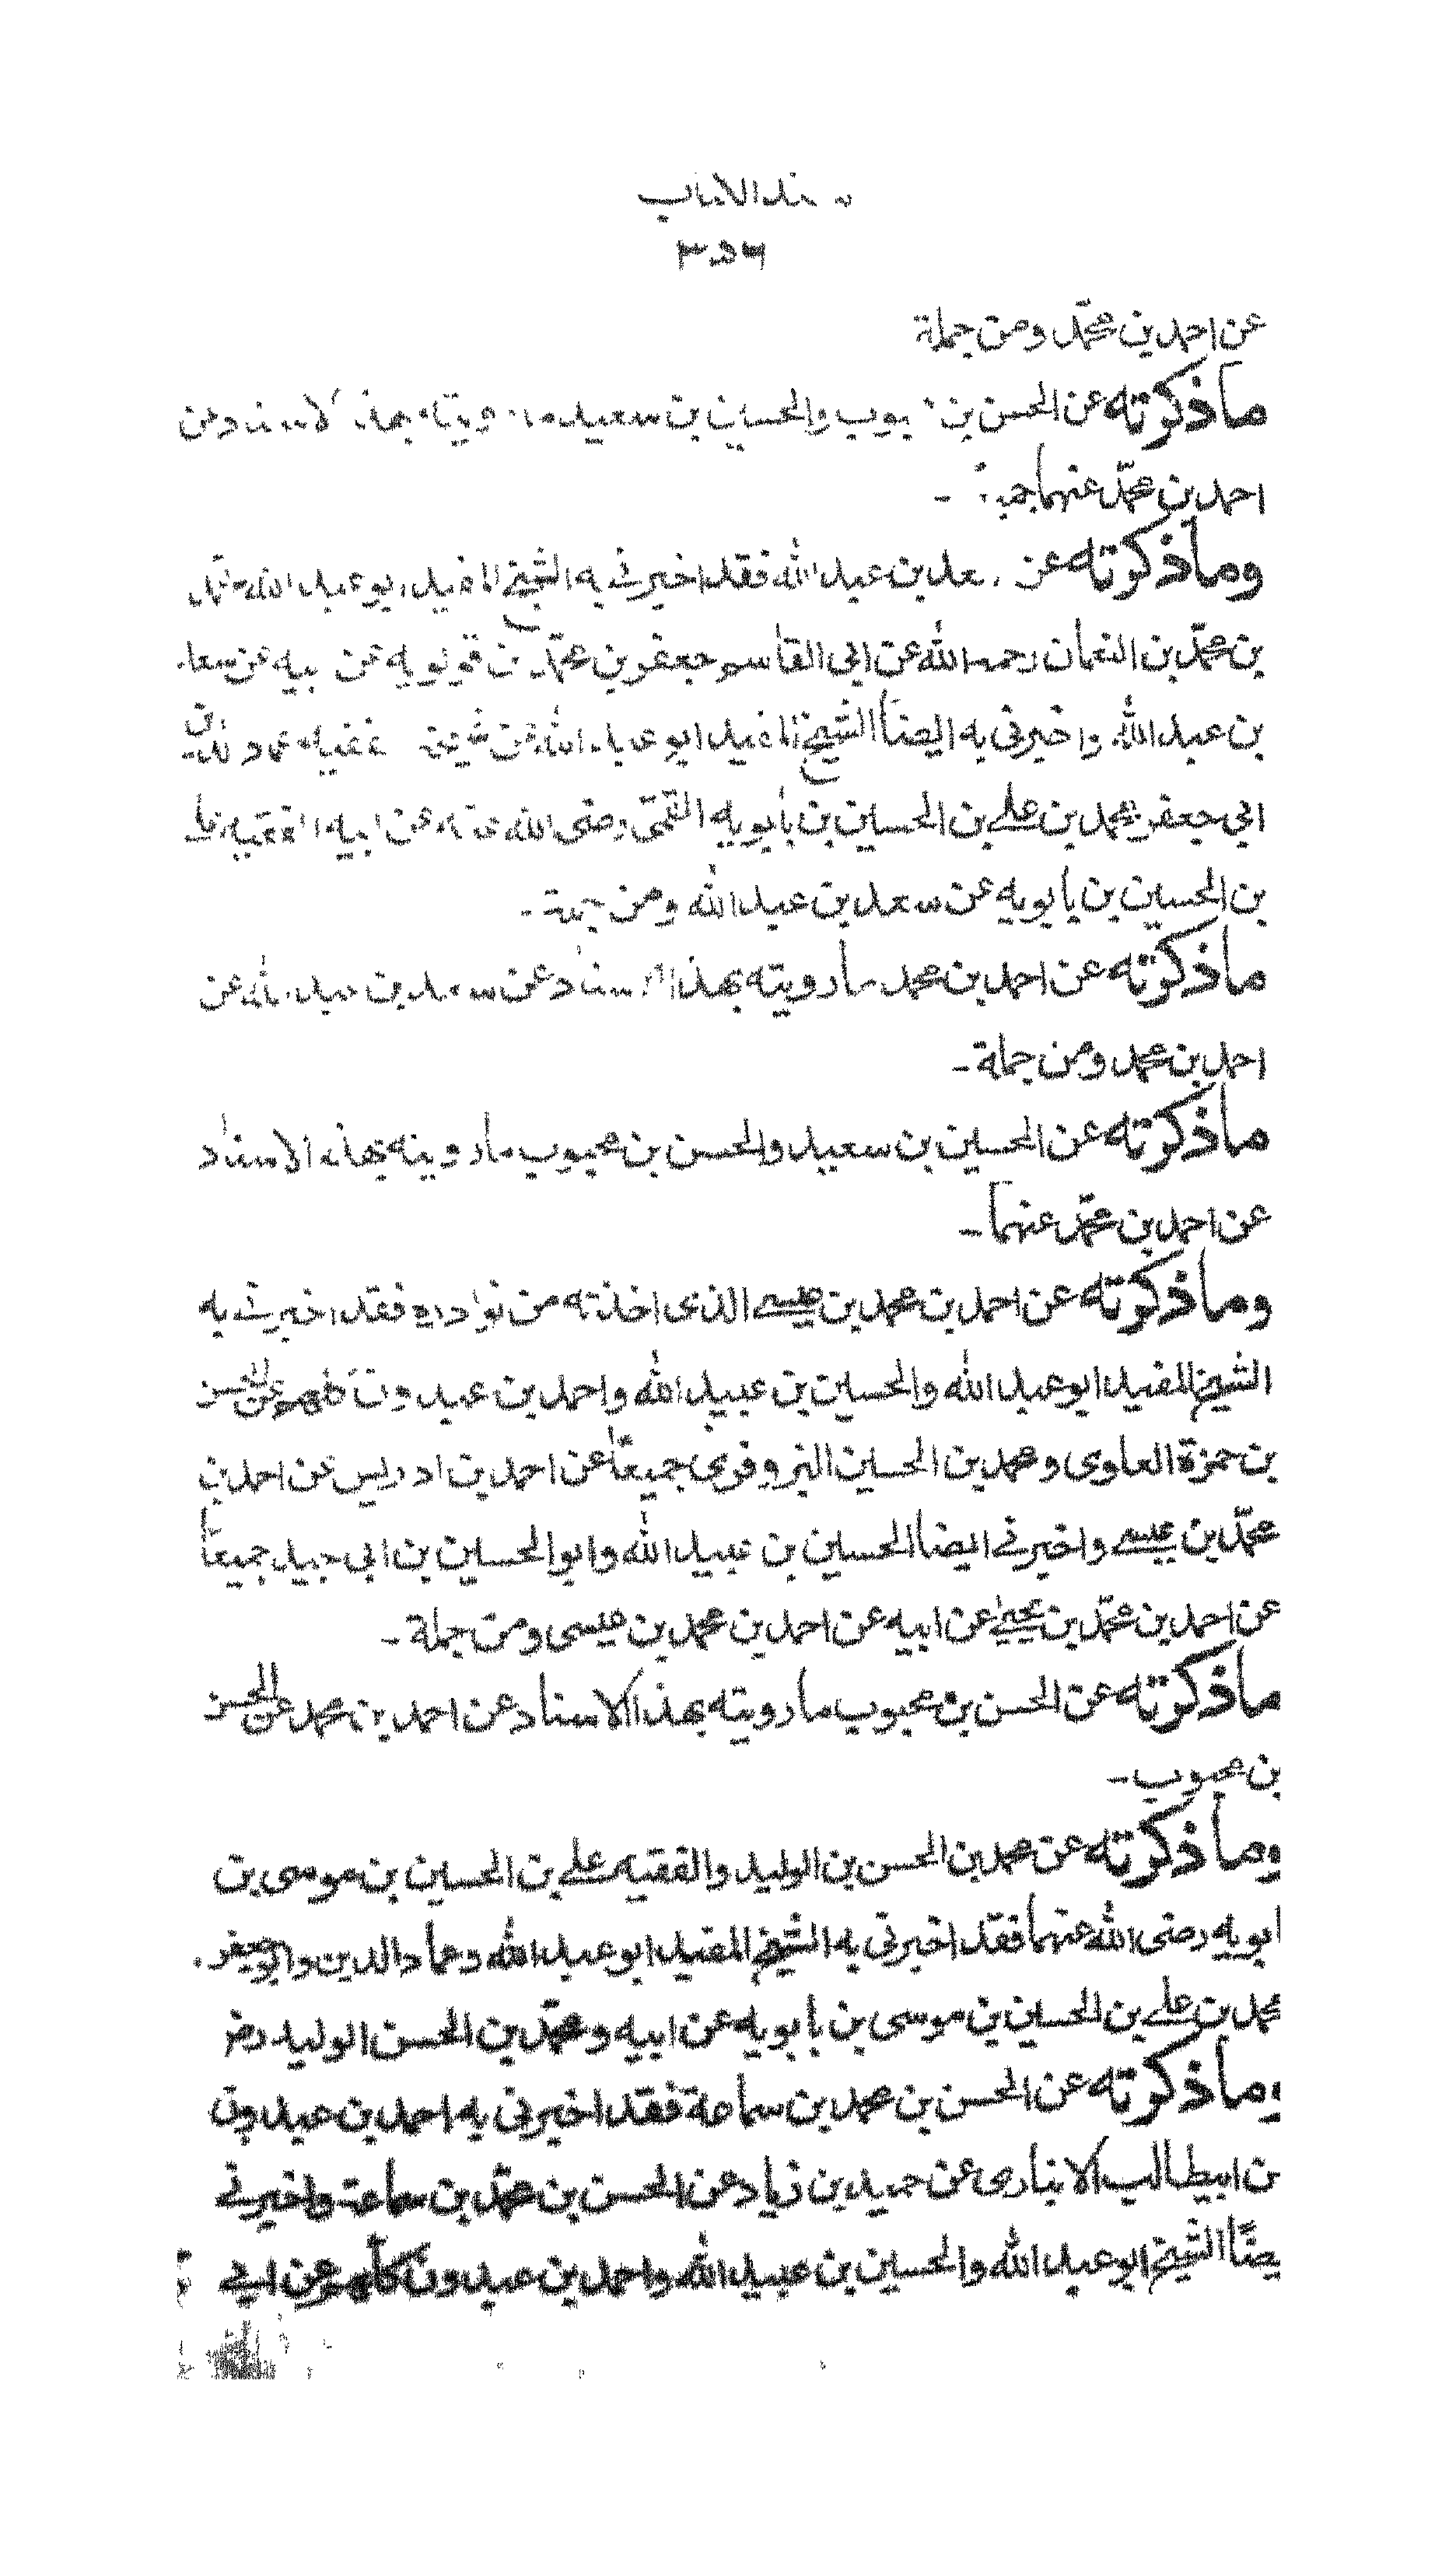 سند الكتاب
٣٥٦
عن احمد بن محمّد ومن جملة
ماذكرته عن الحسن بن محبوب والحسين بن سعيد ما رويته بهذا الاسناد عن
احمد بن محمّد عنهما جميعا -
وماذكرته عن سعد بن عبد الله فقد اخبرنى به الشيخ المفيد ابو عبد الله محمّد
بن محمّد بن النعمان رحمه الله عن ابى القاسم جعفر بن محمّد بن قولويه عن ابيه عن سعد
بن عبد الله واخبرنى به ايضاً الشيخ المفيد ابو عبد الله عن شيخه الفقيه عماد الدين
ابى جعفر محمد بن على بن الحسين بن بابويه القمّى رضى الله عنه عن ابيه الفقيه على
بن الحسين بن بابويه عن سعد بن عبد الله ومن جملة -
ماذكرته عن احمد بن محمد ما رويته بهذا الاسناد عن سعد بن عبد الله عن
احمد بن محمد ومن جملة -
ماذكرته عن الحسين بن سعيد والحسن بن محبوب ما رويته بهذا الاسناد
عن احمد بن محمّد عنهما -
وماذكرته عن احمد بن محمد بن عيسى الذى اخذته من نوادره فقد اخبرنى به
الشيخ المفيد ابو عبد الله والحسين بن عبيد الله واحمد بن عبدون كلهم عن الحسن
بن حمزة العلوى ومحمد بن الحسين البزوفرى جميعاً عن احمد بن ادريس عن احمد بن
محمّد بن عيسى واخبرنى ايضاً الحسين بن عبيد الله وابو الحسين بن ابى جيد جميعاً
عن احمد بن محمّد بن يحيى عن ابيه عن احمد بن محمد بن عيسى ومن جملة -
ماذكرته عن الحسن بن محبوب ما رويته بهذا الاسناد عن احمد بن محمد عن الحسن
بن محبوب -
وماذكرته عن محمد بن الحسن بن الوليد والفقيه على بن الحسين بن موسى بن
ابويه رضى الله عنهما فقد اخبرنى به الشيخ المفيد ابو عبد الله وعماد الدين وابو جعفر
محمد بن على بن الحسين بن موسى بن بابويه عن ابيه ومحمّد بن الحسن الوليد رض
وماذكرته عن الحسن بن محمد بن سماعة فقد اخبرنى به احمد بن عبدون
عن ابيطالب الانبارى عن حميد بن زياد عن الحسن بن محمّد بن سماعة واخبرنى
يضاً الشيخ ابو عبد الله والحسين بن عبيد الله واحمد بن عبدون كلهم عن ابى